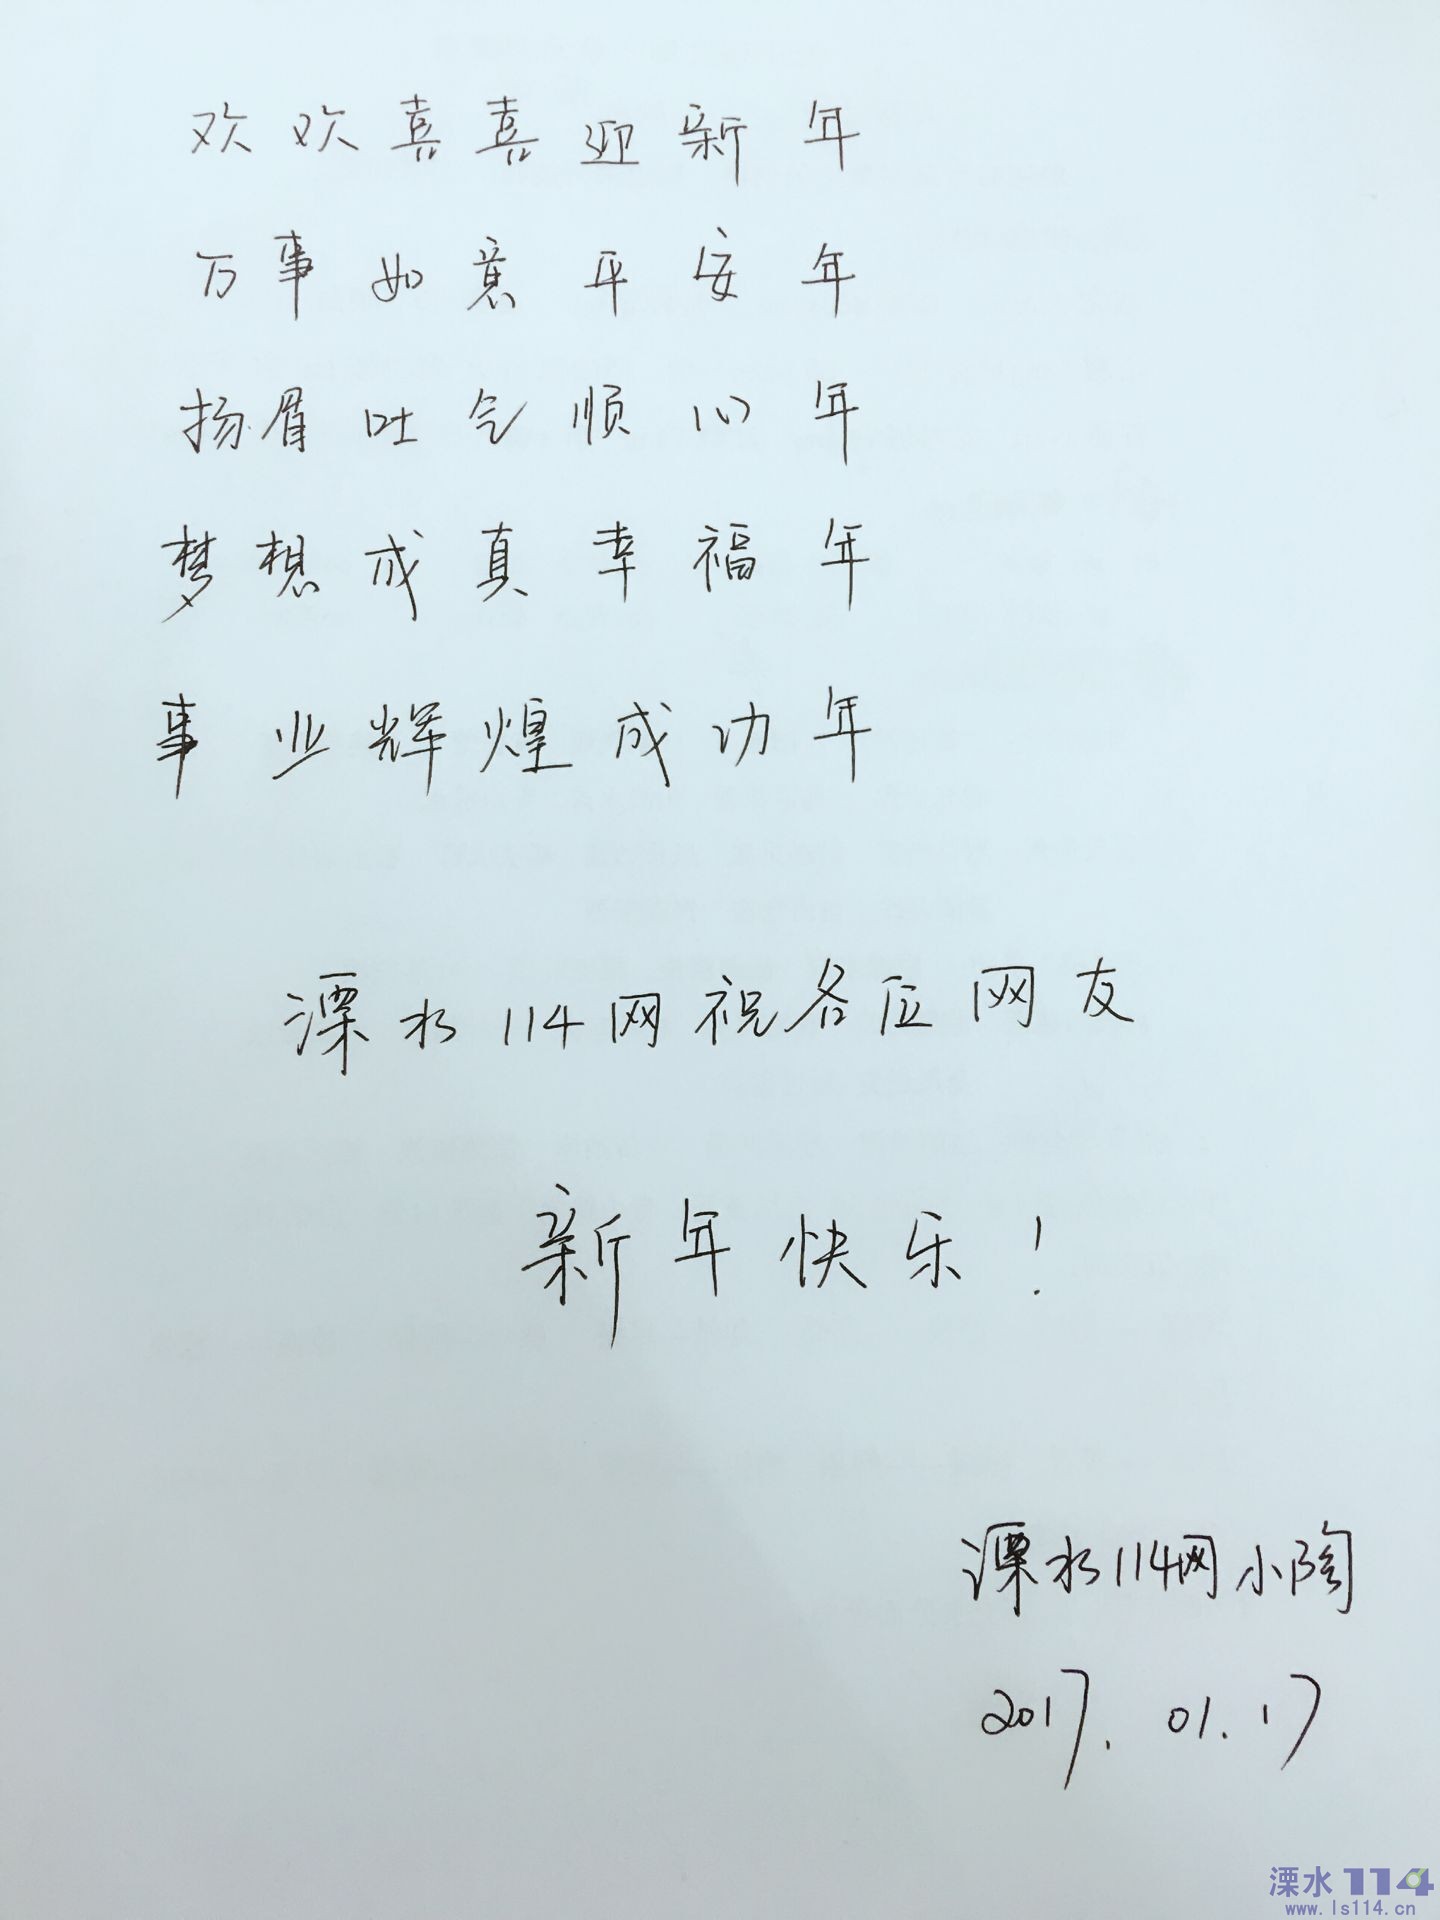 欢欢喜喜迎新年
万事如意平安年
扬眉吐气顺心年
梦想成真幸福年
事业辉煌成功年
溧水114网祝各位网友
新年快乐！
溧水114网小陶
2017.01.17
溧水114
www.ls114.cn